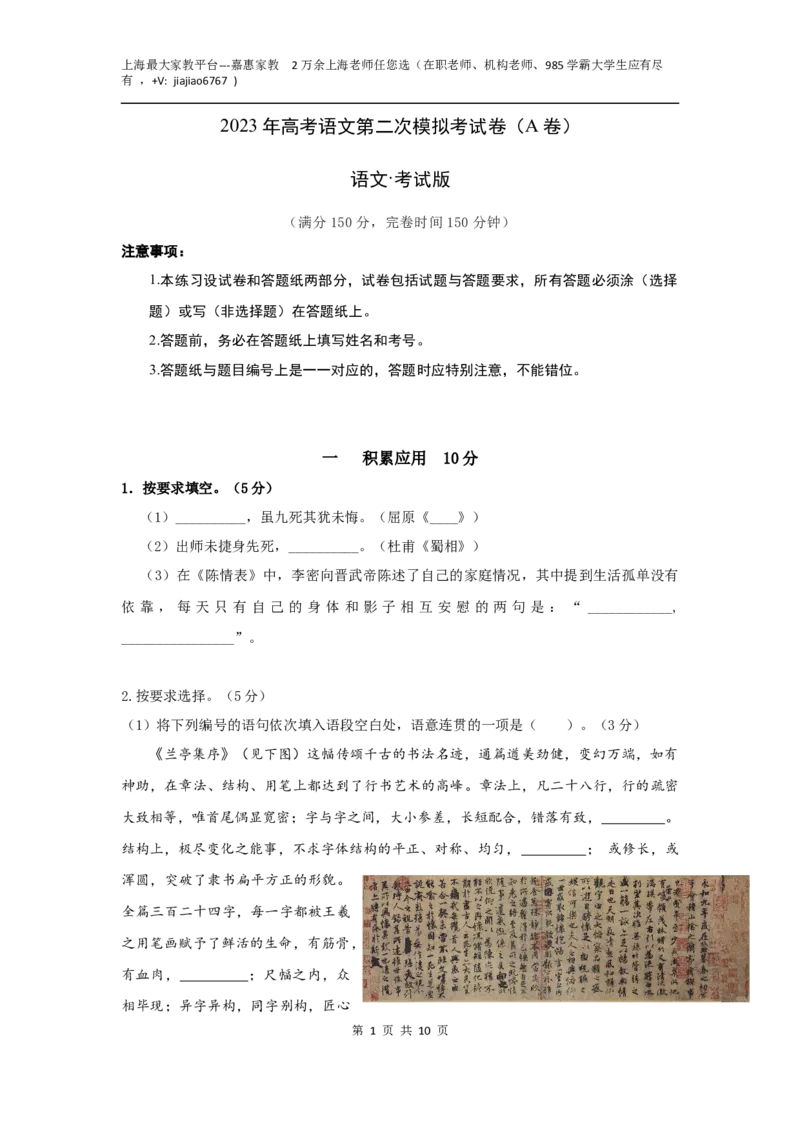 上海最大家教平台---嘉惠家教 2 万余上海老师任您选（在职老师、机构老师、985 学霸大学生应有尽
有 ，+V: jiajiao6767 ）
2023 年高考语文第二次模拟考试卷（A 卷）
语文·考试版
（满分 150 分，完卷时间 150 分钟）
注意事项：
1.本练习设试卷和答题纸两部分，试卷包括试题与答题要求，所有答题必须涂（选择
题）或写（非选择题）在答题纸上。
2.答题前，务必在答题纸上填写姓名和考号。
3.答题纸与题目编号上是一一对应的，答题时应特别注意，不能错位。
一 积累应用 10 分
1．按要求填空。（5 分）
（1）__________，虽九死其犹未悔。（屈原《____》）
（2）出师未捷身先死，__________。（杜甫《蜀相》）
（3）在《陈情表》中，李密向晋武帝陈述了自己的家庭情况，其中提到生活孤单没有
依靠，每天只有自己的身体和影子相互安慰的两句是：“ ____________,
________________”。
2.按要求选择。（5 分）
（1）将下列编号的语句依次填入语段空白处，语意连贯的一项是（ ）。（3 分）
《兰亭集序》（见下图）这幅传颂千古的书法名迹，通篇遒美劲健，变幻万端，如有
神助，在章法、结构、用笔上都达到了行书艺术的高峰。章法上，凡二十八行，行的疏密
大致相等，唯首尾偶显宽密；字与字之间，大小参差，长短配合，错落有致，_________。
结构上，极尽变化之能事，不求字体结构的平正、对称、均匀，_________； 或修长，或
浑圆，突破了隶书扁平方正的形貌。
全篇三百二十四字，每一字都被王羲
之用笔画赋予了鲜活的生命，有筋骨，
有血肉，__________；尺幅之内，众
相毕现；异字异构，同字别构，匠心
第 1 页 共 10 页